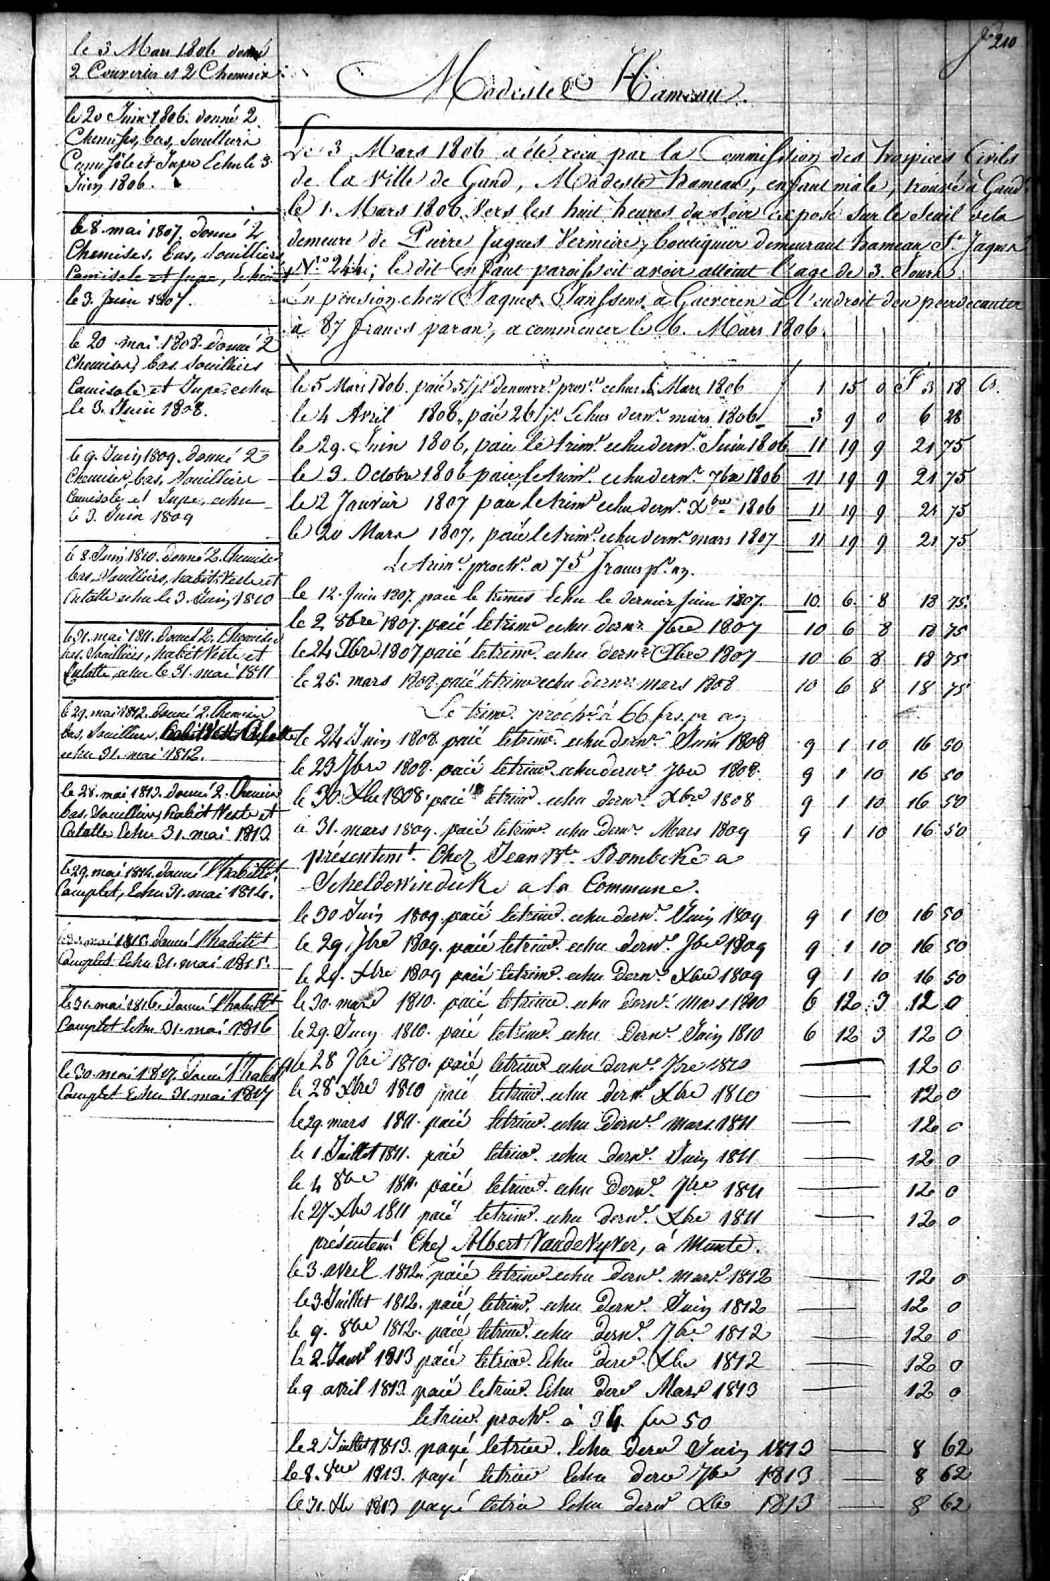 fo 210
Modeste Hameau.
le 3 Mars 1806 donné
2 Couvertes et 2 Chemises
le 20 Juin 1806. donné 2
Chemises, bas, Souilliers
Camisole et Jupe Echu le 3
Juin 1806.
le 8. mai 1807. donné 2
Chemises, bas, Souilliers
Camisole et Jupe, echu
le 3. Juin 1807.
le 20 mai 1808. donné 2
Chemises, bas, Souilliers
Camisole et Jupe echu
le 3. Juin 1808.
le 9. Juin 1809. donné 2
Chemises, bas, Souilliers
Camisole et Jupe, echu
le 3. Juin 1809
le 8 Juin 1810. donné 2. Chemises
bas, Souilliers, habit Veste et
Culotte echu le 3. Juin 1810
le 31. mai 1811. donné 2. Chemises
bas, Souilliers, habit Veste et
Culotte, echu le 31. mai 1811
le 29. mai 1812. donné 2. Chemises
bas, Souilliers, habit Veste Culotte
echu 31. mai 1812.
le 28. mai 1813. donné 2. Chemises
bas, Souilliers, habit Veste et
Culotte Echu 31. mai 1813
le 29. mai 1814. donné l'habillet
Complet, Echu 31. mai 1814.
mai 1815. donné l'habillt
Complet Echu 31. mai 1815.
le 31. mai 1816. donné l'habillt
Complet Echu 31. mai 1816
le 30. mai 1817. donné l'habillt
Complet Echu 31. mai 1817
Le 3 Mars 1806 a été reçu par la Commission des hospices Civiles
de la Ville de Gand, Modeste hameau, enfant mâle, trouvé à Gand
le 1. Mars 1806 Vers les huit heures du soir exposé Sur le Seuil de la
demeure de Pierre Jaques Vermeire, boutiquier demeurant hameau St. Jaques
No. 244; le dit enfant paroissoit avoir atteint l'age de 3. Jours.
en pension chez Jaques Janssens à Gaveren à l'endroit den peerdecanter
à 87 francs par an, a commencer le 6. Mars 1806.
le 5 Mars 1806. paié 5/js. de nourre. prov. echus 5 Mars 1806 1 15 0 F 3 18 C.
le 4 Avril 1806, paié 26 js. Echus dern. mars 1806 3 9 0 6 28
le 29. Juin 1806, paié le trimr. echu dern. Juin 1806 11 19 9 21 75
le 3. Octobr 1806 paié le trimr. echu dern. 7bre 1806 11 19 9 21 75
le 2 Janvier 1807 paié le trimr echu dern. Xbre 1806 11 19 9 21 75
le 20 Mars 1807, paié le trimr. echu dern. mars 1807 11 19 9 21 75
Le trimr. proch. a 75 francs pr. an.
le 12. Juin 1807. paié le trimes Echu le dernier Juin 1807. 10 6 8 18 75
le 2. 8bre 1807. paié le trimr echu dernr 7bre 1807 10 6 8 18 75
le 24 Xbre 1807 paié le trimr. echu dernr Xbre 1807 10 6 8 18 75
le 26. mars 1808 paié le trimr echu dernr mars 1808 10 6 8 18 75
Le trimr. proch. à 66 frs. pr an
le 24 Juin 1808 paié le trimr. echu dernr. Juin 1808 9 1 10 16 50
le 23 7bre 1808. paié le trimr. echu dernr 7bre 1808. 9 1 10 16 50
le 30. Xbre 1808. paié le trimr. echu dernr. Xbre 1808 9 1 10 16 50
le 31. mars 1809. paié le trimr. echu dernr. Mars 1809 9 1 10 16 50
présentemt. Chez Jean Bte. Bombeke a
Scheldewindeke a la Commune.
le 30 Juin 1809. paié le trimr. echu dernr. Juin 1809 9 1 10 16 50
le 29. 7bre 1809. paié le trimr. echu dernr. 7bre 1809 9 1 10 16 50
le 29. Xbre 1809 paié le trimr. echu Dernr. Xbre 1809 9 1 10 16 50
le 30. mars 1810. paié le trimr echu dernr. mars 1810 6 12 3 12 0
le 29. Juin 1810. paié le trimr. echu Dernr. Juin 1810 6 12 3 12 0
le 28 7bre 1810. paié le trimr echu dernr. 7bre 1810 12 0
le 28 Xbre 1810 paié le trimr. echu dernr. Xbre 1810 12 0
le 29. mars 1811. paié le trimr. echu Dernr. mars 1811 12 0
le 1. Juillet 1811. paié le trimr. echu dernr. Juin 1811 12 0
le 4 8bre 1811. paié le trimr. echu Dernr. 7bre 1811 12 0
le 27. Xbre 1811 paié le trimr. echu dernr. Xbre 1811 12 0
présentemt Chez Albert VandeVyver, à Munte.
le 3. avril 1812. paié le trimr echu dernr. mars. 1812 12 0
le 3. Juillet 1812. paié le trimr. echu Dernr. Juin 1812 12 0
le 9. 8bre 1812. paié le trimr. echu dernr. 7bre 1812 12 0
le 2. Janvr 1813 paié le trimr. Echu derr. Xbre 1812 12 0
le 9 avril 1813. paié le trimr. Echu derr Mars 1813 12 0
le trimr. proch. à 34 frs 50
le 2 Juillet 1813. payé le trimr. Echu derr Juin 1813 8 62
le 8. 8bre 1813. payé le trimr Echu derr 7bre 1813 8 62
le 31. Xbre 1813 payé le trimr Echu derr Xbre 1813 8 62